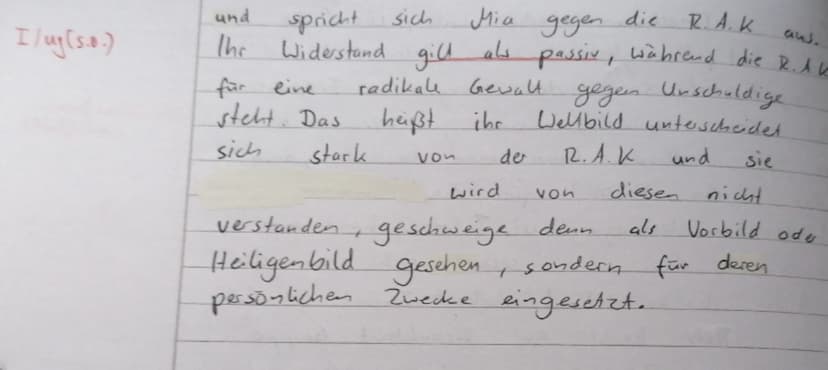 I/ug(s.o.)
und spricht sich Mia gegen die R.A.K aus.
Ihr Widerstand gilt als passiv, während die R.A.K
für eine radikale Gewalt gegen Unschuldige
steht. Das heißt ihr Weltbild unterscheidet
sich stark von der R.A.K und sie
wird von diesen nicht
verstanden, geschweige denn als Vorbild ode
Heiligenbild gesehen, sondern für deren
persönlichen Zwecke eingesetzt.